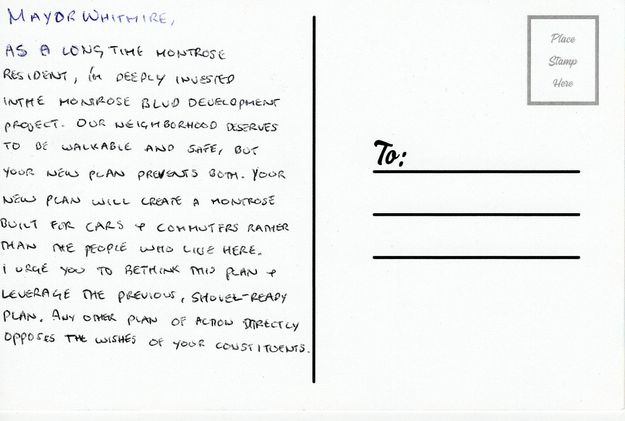 MAYOR WHITMIRE,
AS A LONG TIME MONTROSE
RESIDENT, I'm DEEPLY INVESTED
IN THE MONTROSE BLVD DEVELOPMENT
PROJECT. OUR NEIGHBORHOOD DESERVES
TO BE WALKABLE AND SAFE, BUT
YOUR NEW PLAN PREVENTS BOTH. YOUR
NEW PLAN WILL CREATE A MONTROSE
BUILT FOR CARS & COMMUTERS RATHER
THAN THE PEOPLE WHO LIVE HERE.
I URGE YOU TO RETHINK THIS PLAN &
LEVERAGE THE PREVIOUS, SHOVEL-READY
PLAN. ANY OTHER PLAN OF ACTION DIRECTLY
OPPOSES THE WISHES OF YOUR CONSTITUENTS.
Place
Stamp
Here
To: